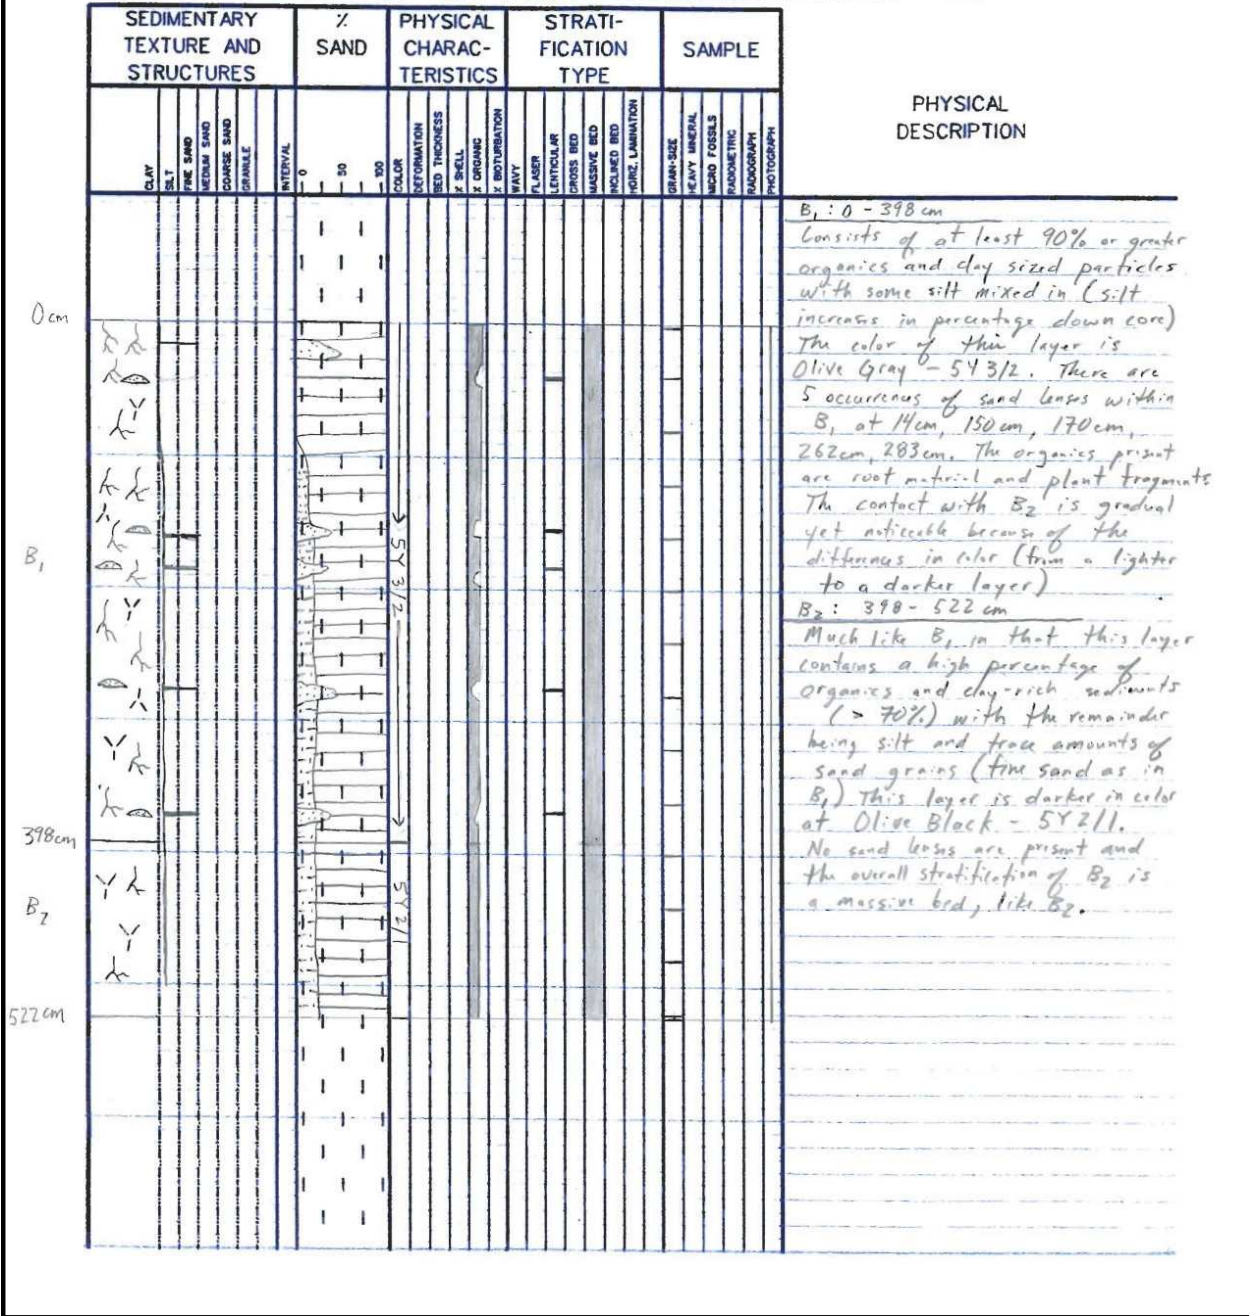 SEDIMENTARY
TEXTURE AND
STRUCTURES
%
SAND
PHYSICAL
CHARAC-
TERISTICS
STRATI-
FICATION
TYPE
SAMPLE
PHYSICAL
DESCRIPTION
CLAY
SILT
FINE SAND
MEDIUM SAND
COARSE SAND
GRANULE
INTERVAL
0
50
100
COLOR
DEFORMATION
BED THICKNESS
% SHELL
% ORGANIC
% BIOTURBATION
WAVY
FLASER
LENTICULAR
CROSS BED
MASSIVE BED
INCLINED BED
HORIZ. LAMINATION
GRAIN-SIZE
HEAVY MINERAL
MICRO FOSSILS
RADIOMETRIC
RADIOGRAPH
PHOTOGRAPH
0cm
B1
398cm
B2
522cm
5Y 3/2
5Y 2/1
B1 : 0 - 398 cm
Consists of at least 90% or greater
organics and clay sized particles
with some silt mixed in (silt
increases in percentage down core)
The color of this layer is
Olive Gray - 5Y 3/2. There are
5 occurrences of sand lenses within
B1 at 14cm, 150cm, 170cm,
262cm, 283cm. The organics present
are root material and plant fragments
The contact with B2 is gradual
yet noticeable because of the
differences in color (from a lighter
to a darker layer)
B2: 398 - 522 cm
Much like B1 in that this layer
contains a high percentage of
organics and clay-rich sediments
(> 70%) with the remainder
being silt and trace amounts of
sand grains (fine sand as in
B1) This layer is darker in color
at Olive Black - 5Y 2/1.
No sand lenses are present and
the overall stratification of B2 is
a massive bed, like B2.